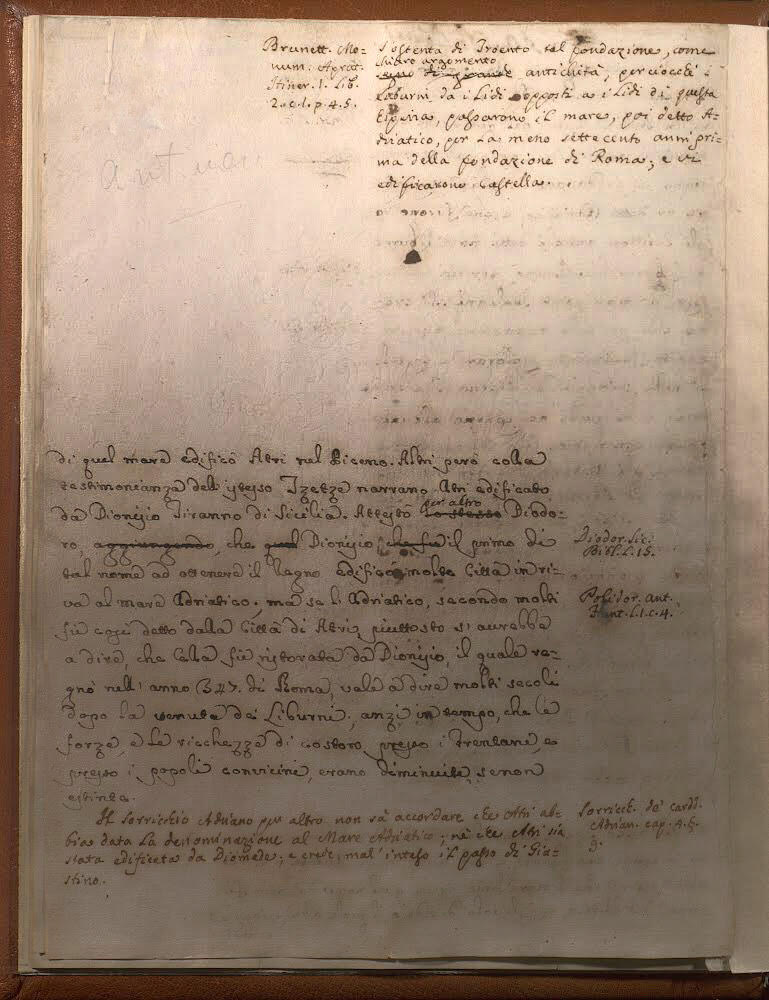 Brunett. Mo-
num: Aprut.
Itiner. 1. Lib.
2. c. 1. p. 4. 5.
s'ostenta di Troento tal fondazione, come
chiaro argomento
segno di grande antichità, perciocchè i
Liburni da i Lidi opposti a i Lidi di questa
Esperia, passarono il mare, poi detto A-
driatico, per la meno settecento anni pri-
ma della fondazione di Roma; e vi
edificarono Castella.
di quel mare edificò Atri nel Piceno. Altri però colla
testimonianza dell'istesso Tzetze narrano Atri edificato
per altro
da Dionisio Tiranno di Sicilia. Attestò lo stesso Diodo-
ro, aggiungendo, che quel Dionisio, che fu il primo di
tal nome ad ottenere il Regno edificò molte Città in ri-
va al mare Adriatico, ma se l'Adriatico, secondo molti
fu così detto dalla Città di Atri, piuttosto s'aurebbe
a dire, che ella fu ristorata da Dionisio, il quale re-
gnò nell'anno 347. di Roma, vale a dire molti secoli
dopo la venuta dei Liburni, anzi in tempo, che le
forze, e le ricchezze di costoro presso i Frentani, e
presso i popoli convicini, erano diminuite, se non
estinte.
Diodor. Sic.
Bibl. L. 15.
Polidor. ant.
L. 1. c. 4.
Il Sorricchio Adriano per altro non sà accordare che Atri ab-
bia data la denominazione al Mare Adriatico; nè che Atri sia
stata edificata da Diomede; e crede, mal'inteso il passo di Giu-
stino.
Sorricch. de' cardi.
Adrian. cap. 4. §.